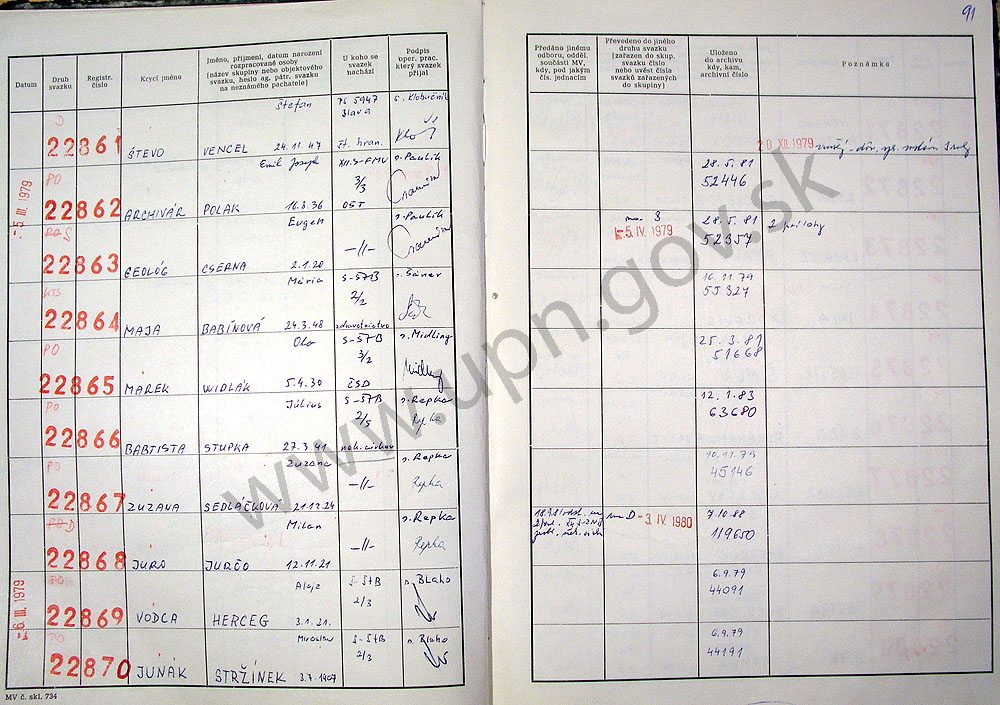 91
Datum
Druh svazku
Registr. číslo
Krycí jméno
Jméno, příjmení, datum narození
rozpracované osoby
(název skupiny nebo objektového
svazku, heslo ag. pátr. svazku
na neznámého pachatele)
U koho se
svazek
nachází
Podpis
oper. prac.
který svazek
přijal
Předáno jinému
odboru, odděl.
součásti MV,
kdy, pod jakým
čís. jednacím
Převedeno do jiného
druhu svazku
(zařazen do skup.
svazku číslo
nebo uvést čísla
svazků zařazených
do skupiny)
Uloženo
do archivu
kdy, kam,
archivní číslo
Poznámka
Štefan
22861 ŠTEVO VENCEL 24.11.47
20 XII 1979
-5. III. 1979
PO Emil Joseph XII.S-FMV s. Paulik
3/3
22862 ARCHIVÁR POLAK 16.8.36 OST
28.5.81
52446
Eugen s. Paulik
22863 GEOLÓG CSERNA 2.1.20 -//-
-5. IV. 1979
28.5.81
52357
2 prílohy
Mária S-ŠTB
2/2
22864 MAJA BABÍNOVÁ 24.3.48 zdravotníctvo
10.11.79
55327
PO Oto S-ŠTB s. Midling
3/2
22865 MAREK WIDLÁK 5.4.30 ČSD
25.3.81
51668
PO Július S-ŠTB s. Repka
2/5
22866 BABTISTA STUPKA 27.3.41
12.1.83
63680
PO Zuzana s. Repka
22867 ZUZANA SEDLÁČKOVÁ 21.12.24 -//- Repka
10.11.79
45146
Milan s. Repka
22868 JURO JURČO 12.11.21 -//- Repka
-3. IV. 1980
7.10.88
119650
-6. III. 1979
PO Alojz S-ŠtB s. Blaho
2/3
22869 VODCA HERCEG 3.1.31.
6.9.79
44091
PO Miroslav S-ŠtB s. Blaho
2/3
22870 JUNÁK STRŽÍNEK 3.7.1907
6.9.79
44191
MV č. skl. 734
www.upn.gov.sk